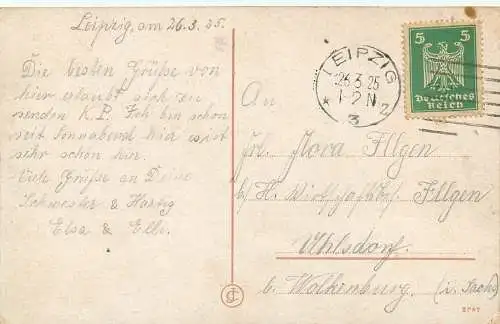 Leipzig, am 26.3.25.
Die besten Grüße von
hier erlaubt sich zu
senden K.P. Ich bin schon
seit Sonnabend hier ist
sehr schön hier.
Viele Grüße an Deine
Schwester &
Elsa & Elli.
LEIPZIG
26.3.25
1-2 N
* 3 2
5 5
Deutsches
Reich
An
Frl. Flora Illgen
b/H. Wirtschaftsbes. Illgen
Uhlsdorf.
b. Wolkenburg (i. Sachs)